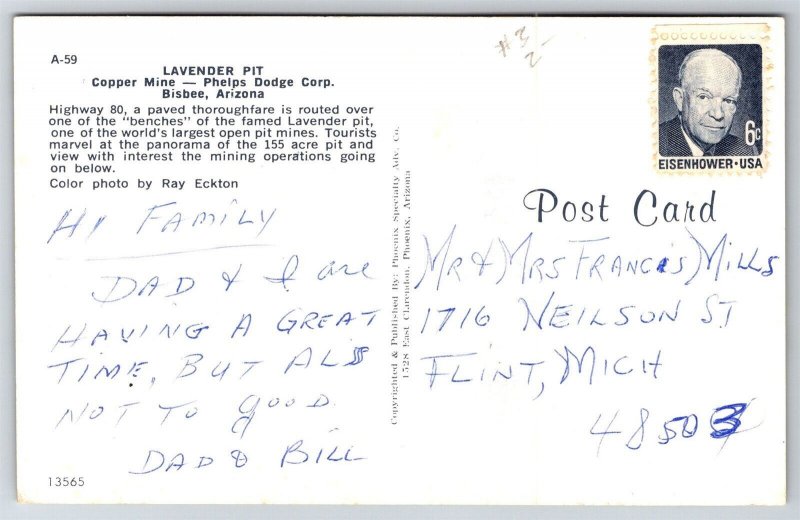 A-59
LAVENDER PIT
Copper Mine — Phelps Dodge Corp.
Bisbee, Arizona
Highway 80, a paved thoroughfare is routed over
one of the "benches" of the famed Lavender pit,
one of the world's largest open pit mines. Tourists
marvel at the panorama of the 155 acre pit and
view with interest the mining operations going
on below.
Color photo by Ray Eckton
HI FAMILY
DAD & I are
HAVING A GREAT
TIME, BUT ALS
NOT TO GOOD
DAD & BILL
13565
Copyrighted & Published By: Phoenix Specialty Adv. Co.
1528 East Clarendon, Phoenix, Arizona
#3
-2
6c
EISENHOWER·USA
Post Card
MR & MRS FRANCIS MILLS
1716 NEILSON ST
FLINT, MICH
48503